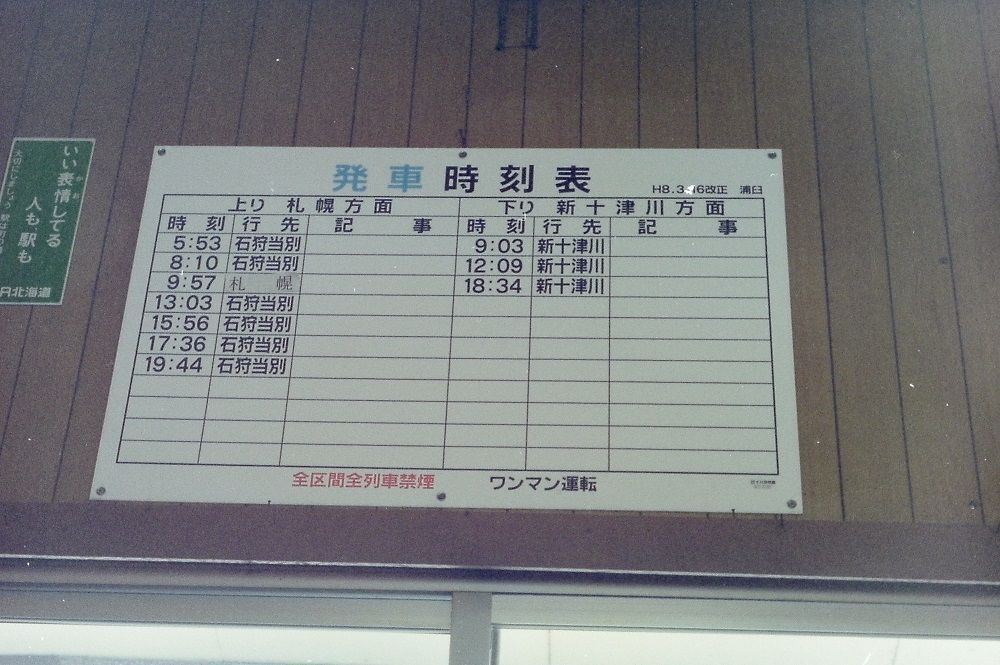 いい表情してる
かお
人も駅も
JR北海道
発車時刻表
H8.3.16改正 浦臼
上り 札幌方面 下り 新十津川方面
時刻 行先 記事 時刻 行先 記事
5:53 石狩当別 9:03 新十津川
8:10 石狩当別 12:09 新十津川
9:57 札幌 18:34 新十津川
13:03 石狩当別
15:56 石狩当別
17:36 石狩当別
19:44 石狩当別
全区間全列車禁煙 ワンマン運転